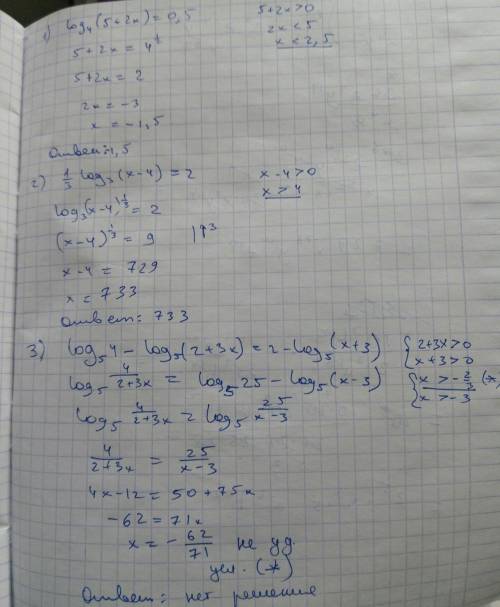 1) log₄(5+2x)=0,5 5+2x>0
5+2x = 4^½ 2x<5
5+2x = 2 x<2,5
2x = -3
x = -1,5
Ответ:-1,5
2) 1/3 log₃(x-4)=2 x-4>0
log₃(x-4)^⅓=2 x>4
(x-4)^⅓=9 |↑³
x-4 = 729
x = 733
Ответ: 733
3) log₅4-log₅(2+3x)=2-log₅(x+3) {2+3x>0
log₅ 4/(2+3x) = log₅25-log₅(x-3) x+3>0
log₅ 4/(2+3x) = log₅ 25/(x-3) {x>-2/3 (*)
4/(2+3x) = 25/(x-3) x>-3
4x-12=50+75x
-62=71x
x=-62/71 не уд.
усл. (*)
Ответ: нет решения